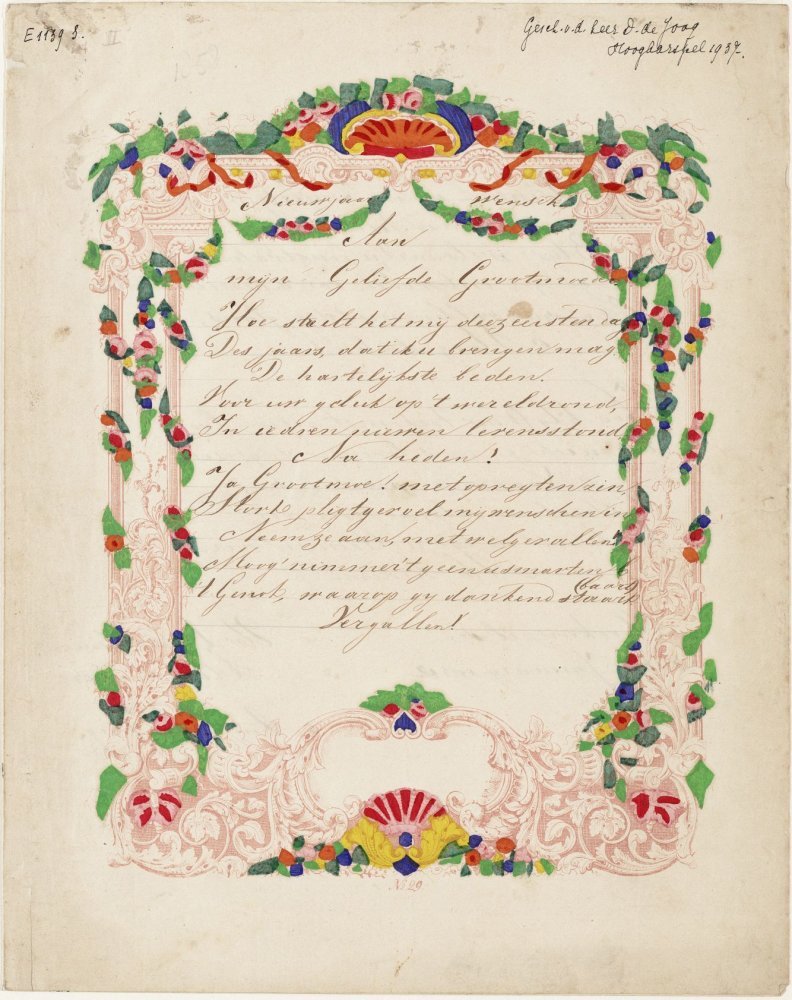 E1139 S.
Gesch. v. d. heer D. de Jong
Hoogkarspel 1937.
Nieuwjaar wensch
Aan
mijn Geliefde Grootmoeder
Hoe streelt het mij deeze eersten dag
Des jaars, dat ik u brengen mag
De hartelijkste beden.
Voor uw geluk op 't wereldrond,
In iedren nieuwen levensstond
Na heden!
Ja, Grootmoe! met opregten zin,
Stort pligtgevoel mijn wenschen in
Neem ze aan, met welgevallen
Moog' nimmer 't geen u smarten
baart
't Genot, waarop gy dankend staart
Vergallen!
No. 29